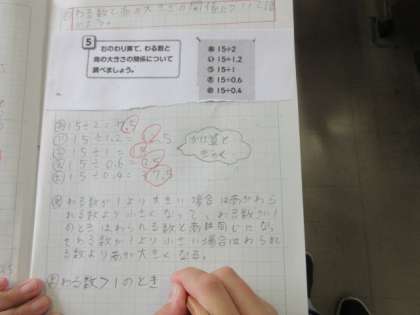 わる数と商の大きさの関係について調
5
右のわり算で、わる数と
商の大きさの関係について
調べましょう。
あ 15÷2
い 15÷1.2
う 15÷1
え 15÷0.6
お 15÷0.4
あ 15÷2=7.5
い 15÷1.2=12.5
う 15÷1=15
え 15÷0.6=25
お 15÷0.4=37.5
かけ算と
ぎゃく
わる数が1より大きい場合は商がわら
れる数より小さくなって、わる数が1
のときはわられる数と商は同じになり、
わる数が1より小さい場合はわられ
る数より商が大きくなる。
ま わる数>1のとき